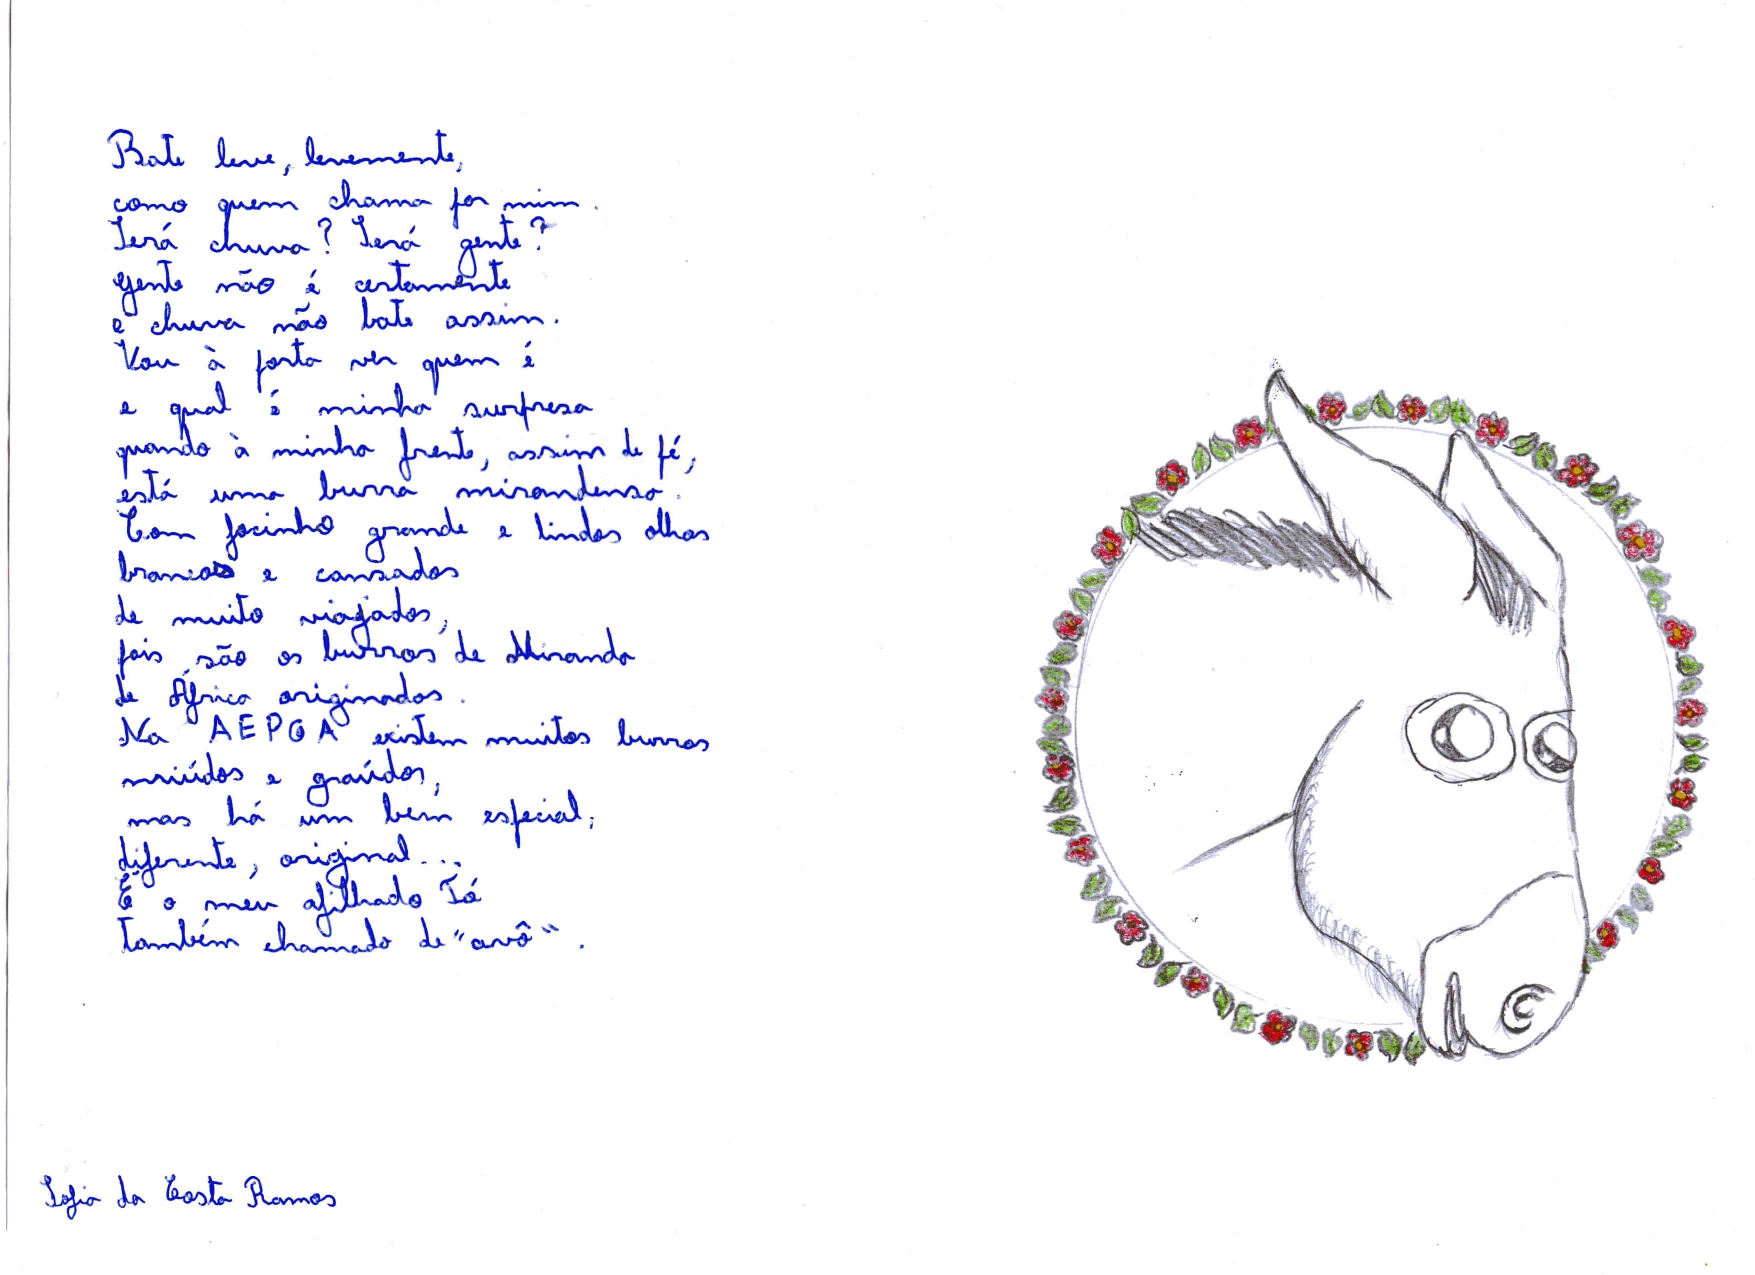 Bate leve, levemente,
como quem chama por mim.
Será chuva? Será gente?
gente não é certamente
e chuva não bate assim.
Vou à porta ver quem é
e qual é minha surpresa
quando à minha frente, assim de pé,
está uma burra mirandesa.
Com focinho grande e lindos olhos
brancos e cansados
de muito viajados,
pois são os burros de Miranda
de África originados.
Na AEPGA existem muitos burros
miúdos e graúdos,
mas há um bem especial,
diferente, original...
É o meu afilhado Tó
também chamado de "avô".
Sofia da Costa Ramos